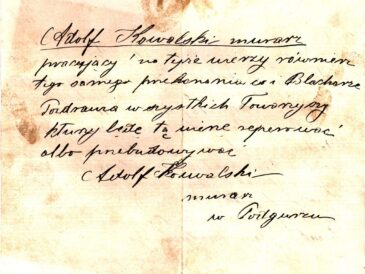 Adolf Kowalski murarz
pracujący na tyże wierzy również
tego samego przekonania co i Blacharz
Pozdrawia wszystkich Towarzyszy
ktury będę tą wierze reperować
albo przebudowywać
Adolf Kowalski
murarz
w Podgurzu